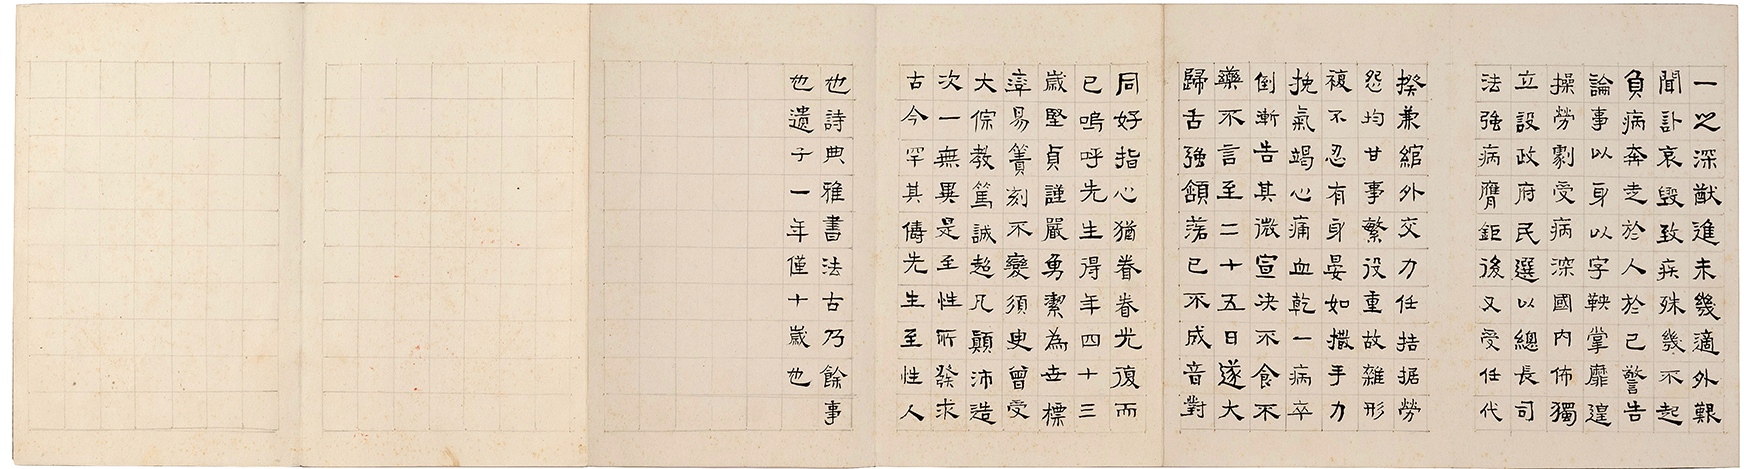 一之深猷進未幾適外艱
聞訃哀毀致疾殊幾不起
負病奔走於人於己警告
論事以身以字鞅掌靡遑
操勞劇受病深國內佈獨
立設政府民選以總長司
法強病膺鉅後又受任代
揆兼綰外交力任拮据勞
怨均甘事繁役重故雜形
複不忍有身晏如撒手力
挽氣竭心痛血乾一病卒
倒漸告其微宣決不食不
藥不言至二十五日遂大
歸舌強頷落已不成音對
同好指心猶眷眷光復而
已嗚呼先生得年四十三
歲堅貞謹嚴勇潔為世標
準易簀刻不變須臾曾受
大倧教篤誠超凡顛沛造
次一無異是至性所發求
古今罕其儔先生至性人
也詩典雅書法古乃餘事
也遺子一年僅十歲也